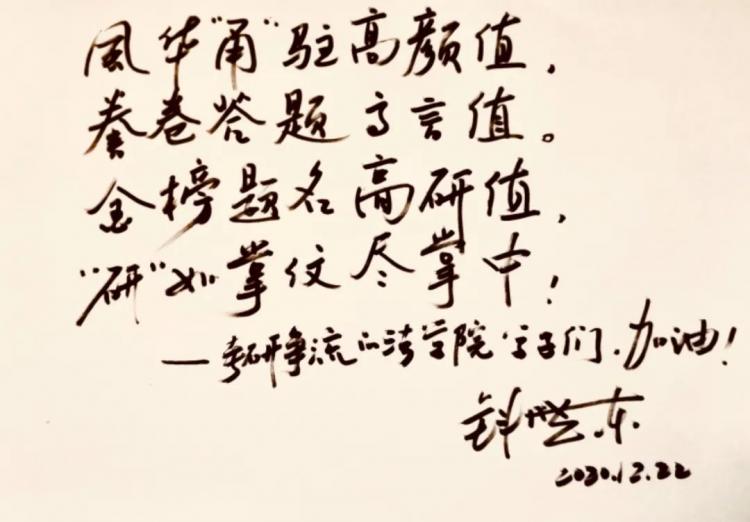 風华"甬"驻高颜值,
奏卷答题高言值。
金榜题名高研值,
"研"如掌纹尽掌中!
—考研争流的法学院学子们,加油!
钟世东
2020.12.22